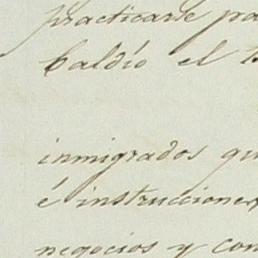 practicarse pa
baldío el B
inmigrados qu
é instrucciones
negocios y con